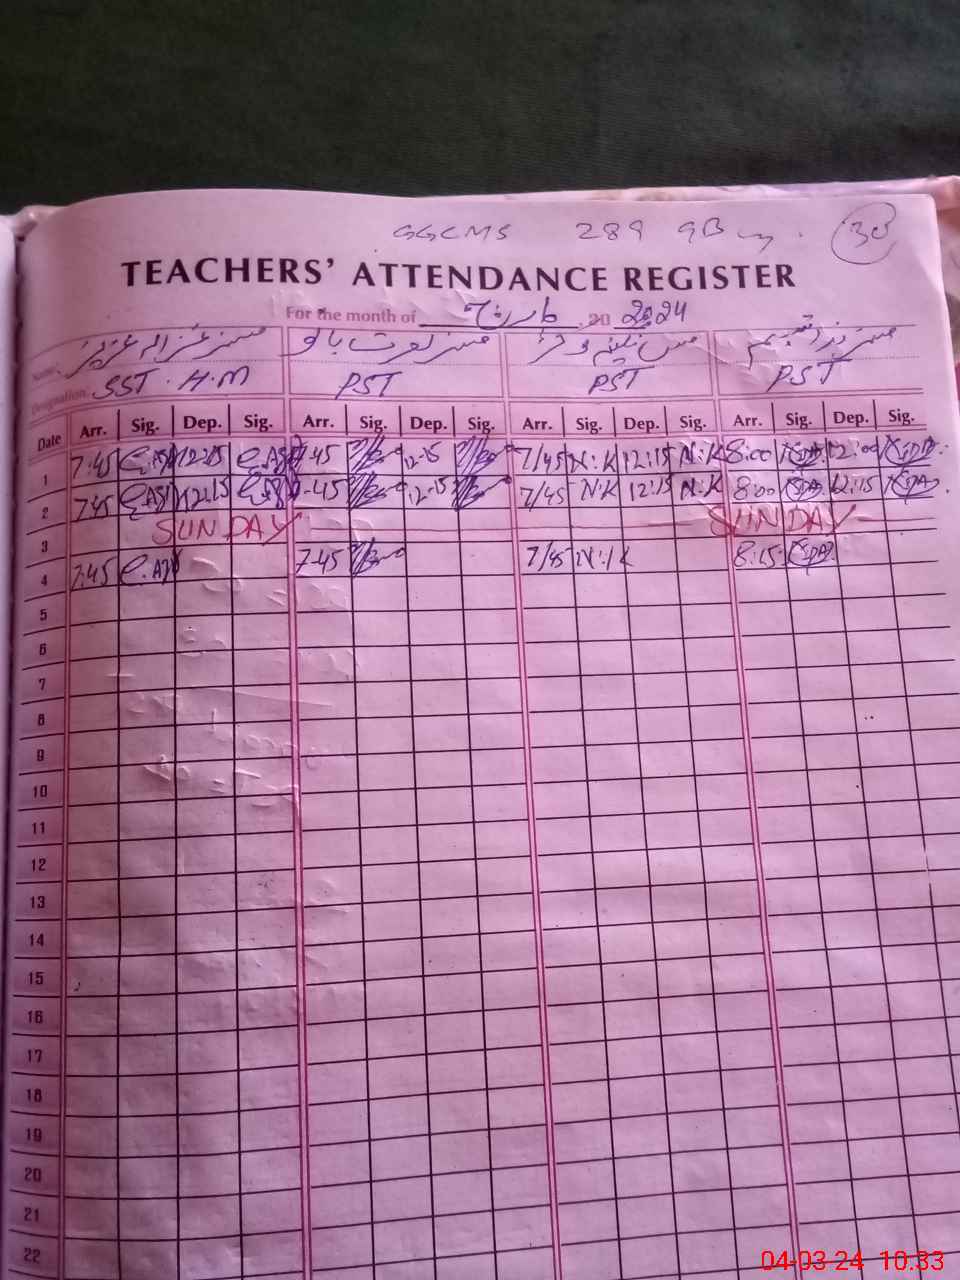 GGCMS 289 GB 30
TEACHERS' ATTENDANCE REGISTER
For the month of مارچ 2024
Name مسز غزالہ عزیز مسز نصرت بانو مس
Designation SST. H.M PST PST PST
Date Arr. Sig. Dep. Sig. Arr. Sig. Dep. Sig. Arr. Sig. Dep. Sig. Arr. Sig. Dep. Sig.
1 7:45 12:15 7-45 12-15 7/45 N.K 12:15 N.K 8:00 12:00
2 7:45 12:15 7-45 12-15 7/45 N.K 12:15 N.K 8:00 12:15
3 SUNDAY SUNDAY
4 7:45 7-45 7/45 N.K 8:15
5
6
7
8
9
10
11
12
13
14
15
16
17
18
19
20
21
22
04-03-24 10:33